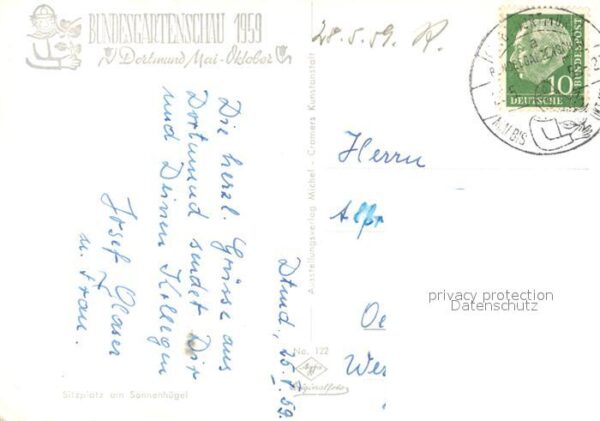 BUNDESGARTENSCHAU 1959
Dortmund Mai-Oktober
28.5.59. R.
10
DEUTSCHE
BUNDESPOST
Die herzl. Grüsse aus
Dortmund sendet Dir
und Deinen Kollegen
Josef Glaser
u. Frau.
Dtmd., 25.5.59.
Ausstellungsverlag Michel - Cramers Kunstanstalt
Herrn
Alfr
Oe
Wes
privacy protection
Datenschutz
No. 122
Agfa
Originalfoto
Sitzplatz am Sonnenhügel